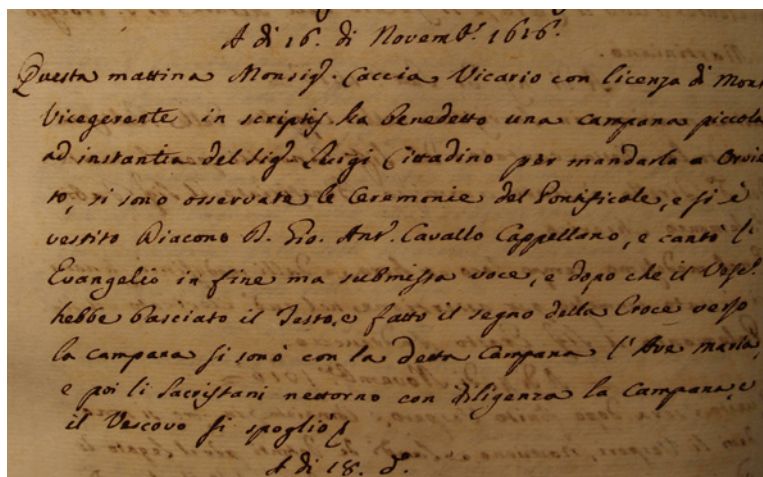 A di 16. di Novembr. 1616.
Questa mattina Monsigr. Caccia Vicario con licenza di Mons
Vicegerente in scriptis ha benedetto una campana piccola
ad instantia del Sigr Luigi Cittadino per mandarla a Orvie
to, si sono osservate le Ceremonie del Pontificale, e si è
vestito Diacono D. Gio. Antº. Cavallo Cappellano, e cantò l'
Evangelio in fine ma submissa voce, e dopo che il Vesc.
hebbe basciato il Testo, e fatto il segno della Croce verso
la campana si sonò con la detta Campana l'Ave maria,
e poi li Sacristani nettorno con diligenza la Campana, e
il Vescovo si spogliò
A di 18. dº.